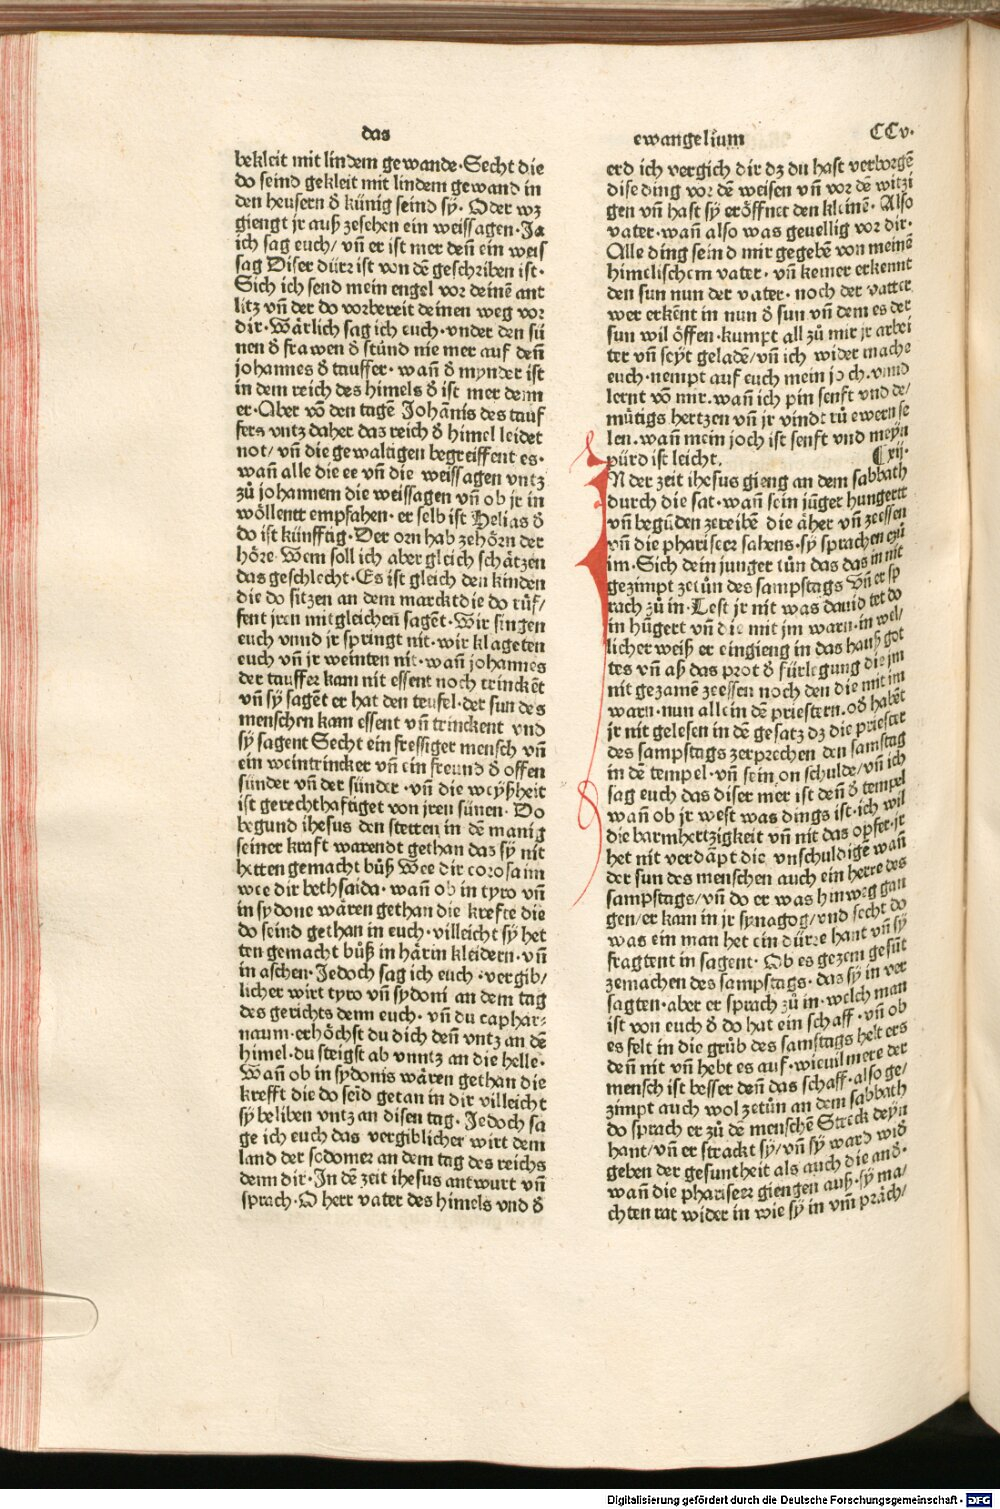 das
bekleit mit lindem gewande· Secht die
do seind gekleit mit lindem gewand in
den heusern d̄ künig seind sy̋· Oder wz
giengt jr auß zesehen ein weissagen· Ja
ich sag euch/ vn̄ er ist mer den̄ ein weis
sag Diser dürr ist von dē geschriben ist·
Sich ich send mein engel vor deinē ant
litz vn̄ der do vorbereit deinen weg vor
dir· Wärlich sag ich euch· vnder den sü
nen d̄ frawen d̄ stůnd nie mer auf den̄
johannes d̄ tauffer· wan̄ d̄ mynder ist
in dem reich des himels d̄ ist mer denn
er· Aber vō den tagē Johānis des tauf
fers vntz daher das reich d̄ himel leidet
not/ vn̄ die gewaltigen begreiffent es·
wan̄ alle die ee vn̄ die weissagen vntz
zů johannem die weissagen vn̄ ob jr in
wöllentt empfahen· er selb ist Helias d̄
do ist künfftig· Der orn hab zehörn der
höre· Wem soll ich aber gleich schätzen
das geschlecht· Es ist gleich den kinden
die do sitzen an dem marckt die do růf/
fent jren mitgleichen sagēt· Wir singen
euch vnnd jr springt nit· wir klageten
euch vn̄ jr weinten nit· wan̄ johannes
der tauffer kam nit essent noch trinckēt
vn̄ sy̋ sagēt er hat den teufel· der sun des
menschen kam essent vn̄ trinckent vnd
sy̋ sagent Secht ein fressiger mensch vn̄
ein weintrincker vn̄ ein freund d̄ offen
sünder vn̄ der sünder· vn̄ die weyßheit
ist gerechthaftiget von jren sünen· Do
begund ihesus den stetten in dē manig
seiner kraft warendt gethan das sy̋ nit
hetten gemacht bůß Wee dir corosaim
wee dir bethsaida· wan̄ ob in tyro vn̄
in sydone wären gethan die krefte die
do seind gethan in euch· villeicht sy̋ het
ten gemacht bůß in härin kleidern· vn̄
in aschen· Jedoch sag ich euch· vergib/
licher wirt tyro vn̄ sydoni an dem tag
des gerichts denn euch· vn̄ du caphar⸗
naum· erhöchst du dich den̄ vntz an dē
himel· du steigst ab vnntz an die helle·
Wan̄ ob in sydonis wären gethan die
krefft die do seīd getan in dir villeicht
sy̋ beliben vntz an disen tag· Jedoch sa
ge ich euch das vergiblicher wirt dem
land der sodomer an dem tag des reichs
denn dir· In dē zeit ihesus antwurt vn̄
sprach· O herr vater des himels vnd d̄
ewangelium
CCv·
erd ich vergich dir dz du hast verborgē
dise ding vor dē weisen vn̄ vor dē witzi
gen vn̄ hast sy̋ eröffnet den kleinē· Also
vater· wan̄ also was geuellig vor dir·
Alle ding seind mir gegebē von meinē
himelischem vater· vn̄ keiner erkennt
den sun nun der vater· noch der vatter
wer erkēnt in nun d̄ sun vn̄ dem es der
sun wil öffen· kumpt all zů mir jr arbei
ter vn̄ seyt geladē/ vn̄ ich wider mache
euch· nempt auf euch mein joch· vnnd
lernt vō mir· wan̄ ich pin senft vnd de/
mütigs hertzen vn̄ jr vindt rů ewern se
len· wan̄ mein joch ist senft vnd meyn
pürd ist leicht.
xij·
N der zeit ihesus gieng an dem sabbath
durch die sat· wan̄ sein jūger hungertt
vn̄ begūden zereibē die äher vn̄ zeessen
vn̄ die phariseer sahens· sy̋ sprachen czů
im· Sich dein junger tůn das das in nit
gezimpt zetůn des sampstags Vn̄ er sp
rach zů in· Lest jr nit was dauid tet do
in hūgert vn̄ die mit jm warn· in wel/
licher weiß er eingieng in das hauß got
tes vn̄ aß das prot d̄ fürlegung die jm
nit gezamē zeessen noch den die mit im
warn· nun allein dē priestern· od̄ habēt
jr nit gelesen in dē gesatz dz die priester
des sampstags zerprechen den samstag
in dē tempel· vn̄ sein on schulde/ vn̄ ich
sag euch das diser mer ist den̄ d̄ tempel
wan̄ ob jr west was dings ist· ich wil
die barmhertzigkeit vn̄ nit das opfer· jr
het nit verdāpt die vnschuldigē wan̄
der sun des menschen auch ein herre des
sampstags/ vn̄ do er was hinweg gan
gen/ er kam in jr synagog/ vnd secht do
was ein man het ein dürre hant vn̄ sy̋
fragtent in sagent· Ob es gezem gesūt
zemachen des sampstags· das sy̋ in ver
sagten· aber er sprach zů in· welch man
ist von euch d̄ do hat ein schaff· vn̄ ob
es felt in die grůb des samstags helt ers
den̄ nit vn̄ hebt es auf· wieuil mere der
mensch ist besser den̄ das schaff· also ge/
zimpt auch wol zetůn an dem sabbath
do sprach er zů dē menschē Streck deyn
hant/ vn̄ er strackt sy/ vn̄ sy̋ ward wid̄
geben der gesuntheit als auch die and̄·
wan̄ die phariseer giengen auß· sy̋ ma/
chten rat wider in wie sy̋ in vm̄ präch/
Digitalisierung gefördert durch die Deutsche Forschungsgemeinschaft - DFG